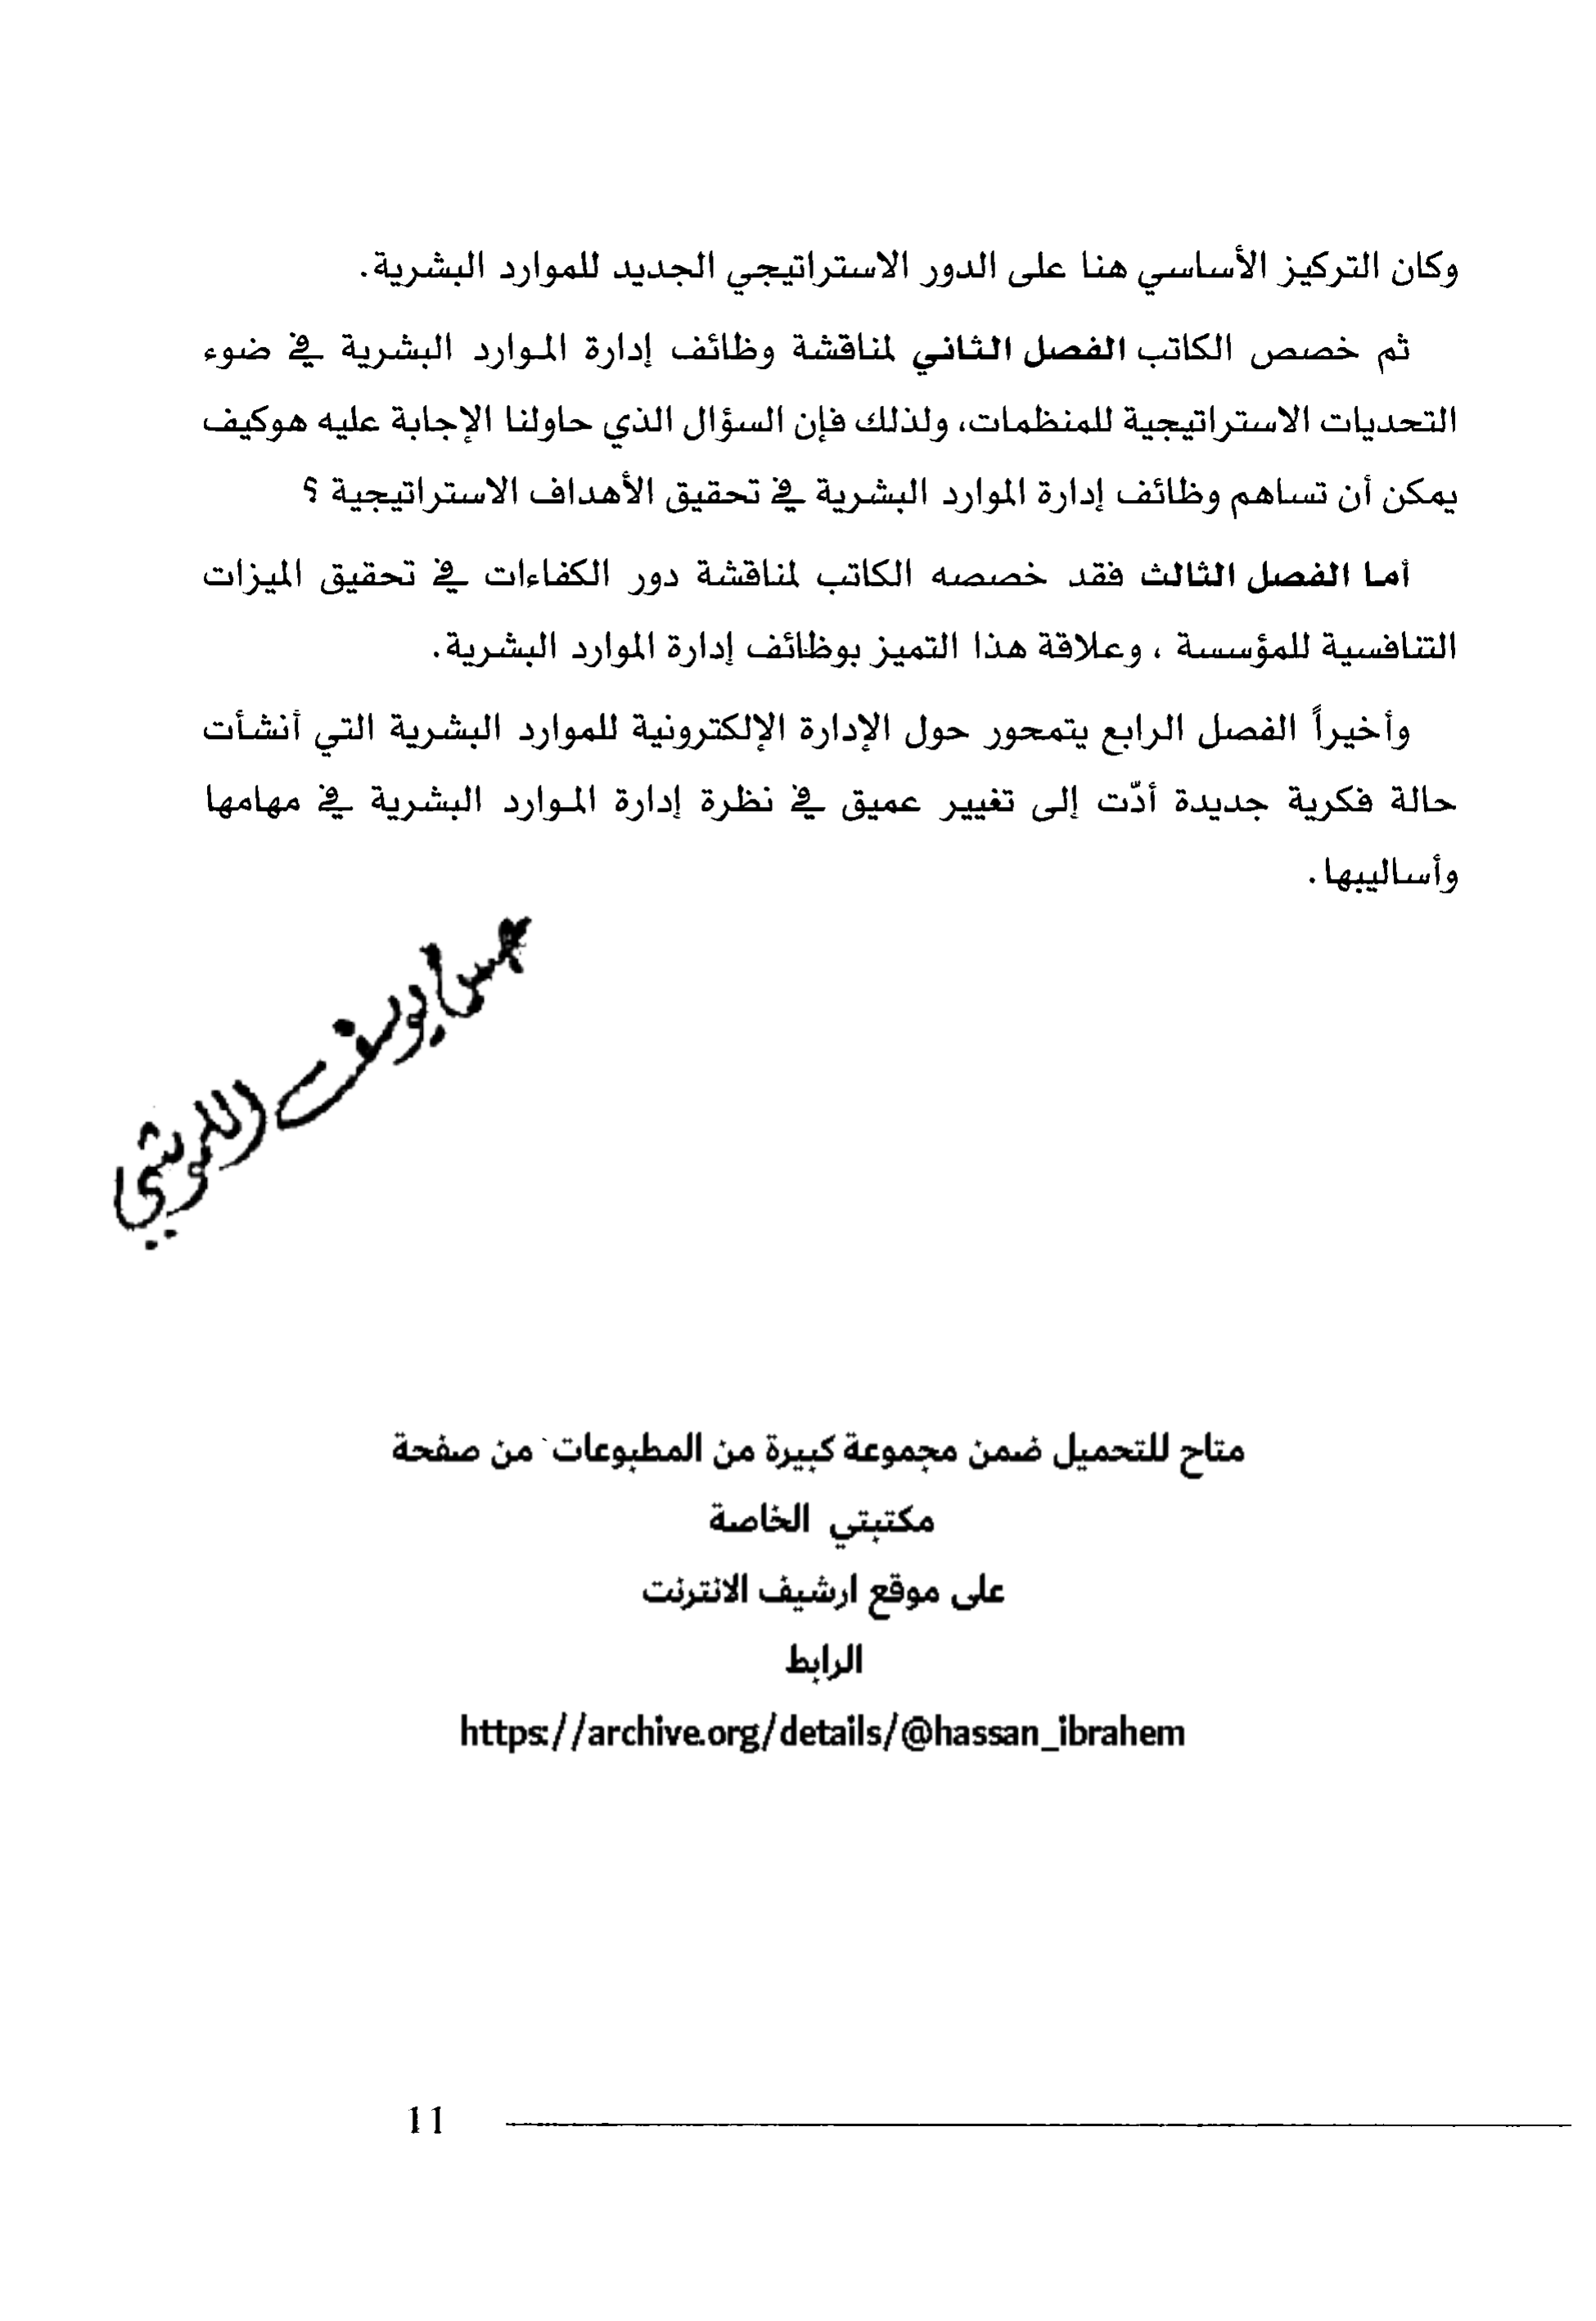 وكان التركيز الأساسي هنا على الدور الاستراتيجي الجديد للموارد البشرية.
ثم خصص الكاتب الفصل الثاني لمناقشة وظائف إدارة الموارد البشرية في ضوء
التحديات الاستراتيجية للمنظمات، ولذلك فإن السؤال الذي حاولنا الإجابة عليه هوكيف
يمكن أن تساهم وظائف إدارة الموارد البشرية في تحقيق الأهداف الاستراتيجية ؟
أما الفصل الثالث فقد خصصه الكاتب لمناقشة دور الكفاءات في تحقيق الميزات
التنافسية للمؤسسة ، وعلاقة هذا التميز بوظائف إدارة الموارد البشرية.
وأخيراً الفصل الرابع يتمحور حول الإدارة الإلكترونية للموارد البشرية التي أنشأت
حالة فكرية جديدة أدّت إلى تغيير عميق في نظرة إدارة الموارد البشرية في مهامها
وأساليبها.
يوسف
متاح للتحميل ضمن مجموعة كبيرة من المطبوعات من صفحة
مكتبتي الخاصة
على موقع ارشيف الانترنت
الرابط
https://archive.org/details/@hassan_ibrahem
11